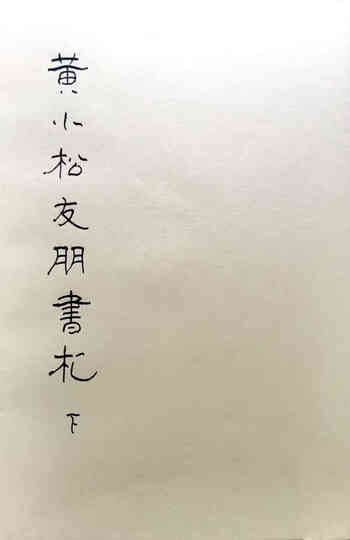 黄小松友朋書札 下